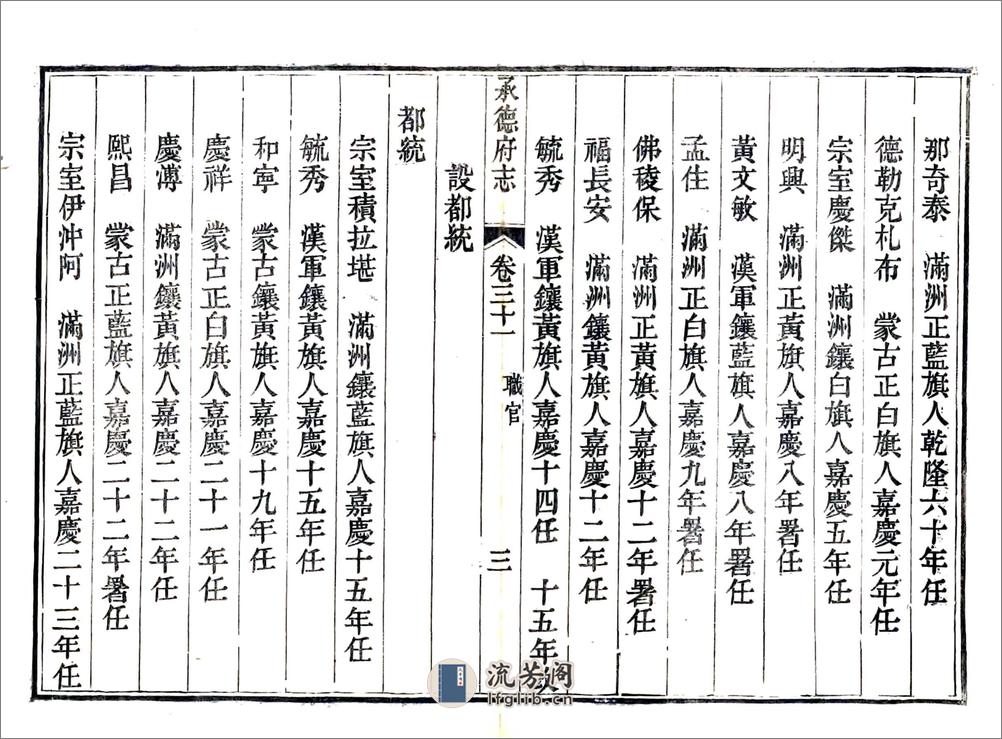 那奇泰　滿洲正藍旗人乾隆六十年任
德勒克札布　蒙古正白旗人嘉慶元年任
宗室慶傑　滿洲鑲白旗人嘉慶五年任
明興　滿洲正黃旗人嘉慶八年署任
黃文敏　漢軍鑲藍旗人嘉慶八年署任
孟住　滿洲正白旗人嘉慶九年署任
佛稜保　滿洲正黃旗人嘉慶十二年署任
福長安　滿洲鑲黃旗人嘉慶十二年任
毓秀　漢軍鑲黃旗人嘉慶十四任　十五年改
承德府志　卷三十一　職官　三
設都統
都統
宗室積拉堪　滿州鑲藍旗人嘉慶十五年任
毓秀　漢軍鑲黃旗人嘉慶十五年任
和寧　蒙古鑲黃旗人嘉慶十九年任
慶祥　蒙古正白旗人嘉慶二十一年任
慶溥　滿洲鑲黃旗人嘉慶二十二年任
熙昌　蒙古正藍旗人嘉慶二十二年署任
宗室伊沖阿　滿洲正藍旗人嘉慶二十三年任
流芳阁
lfglib.cn